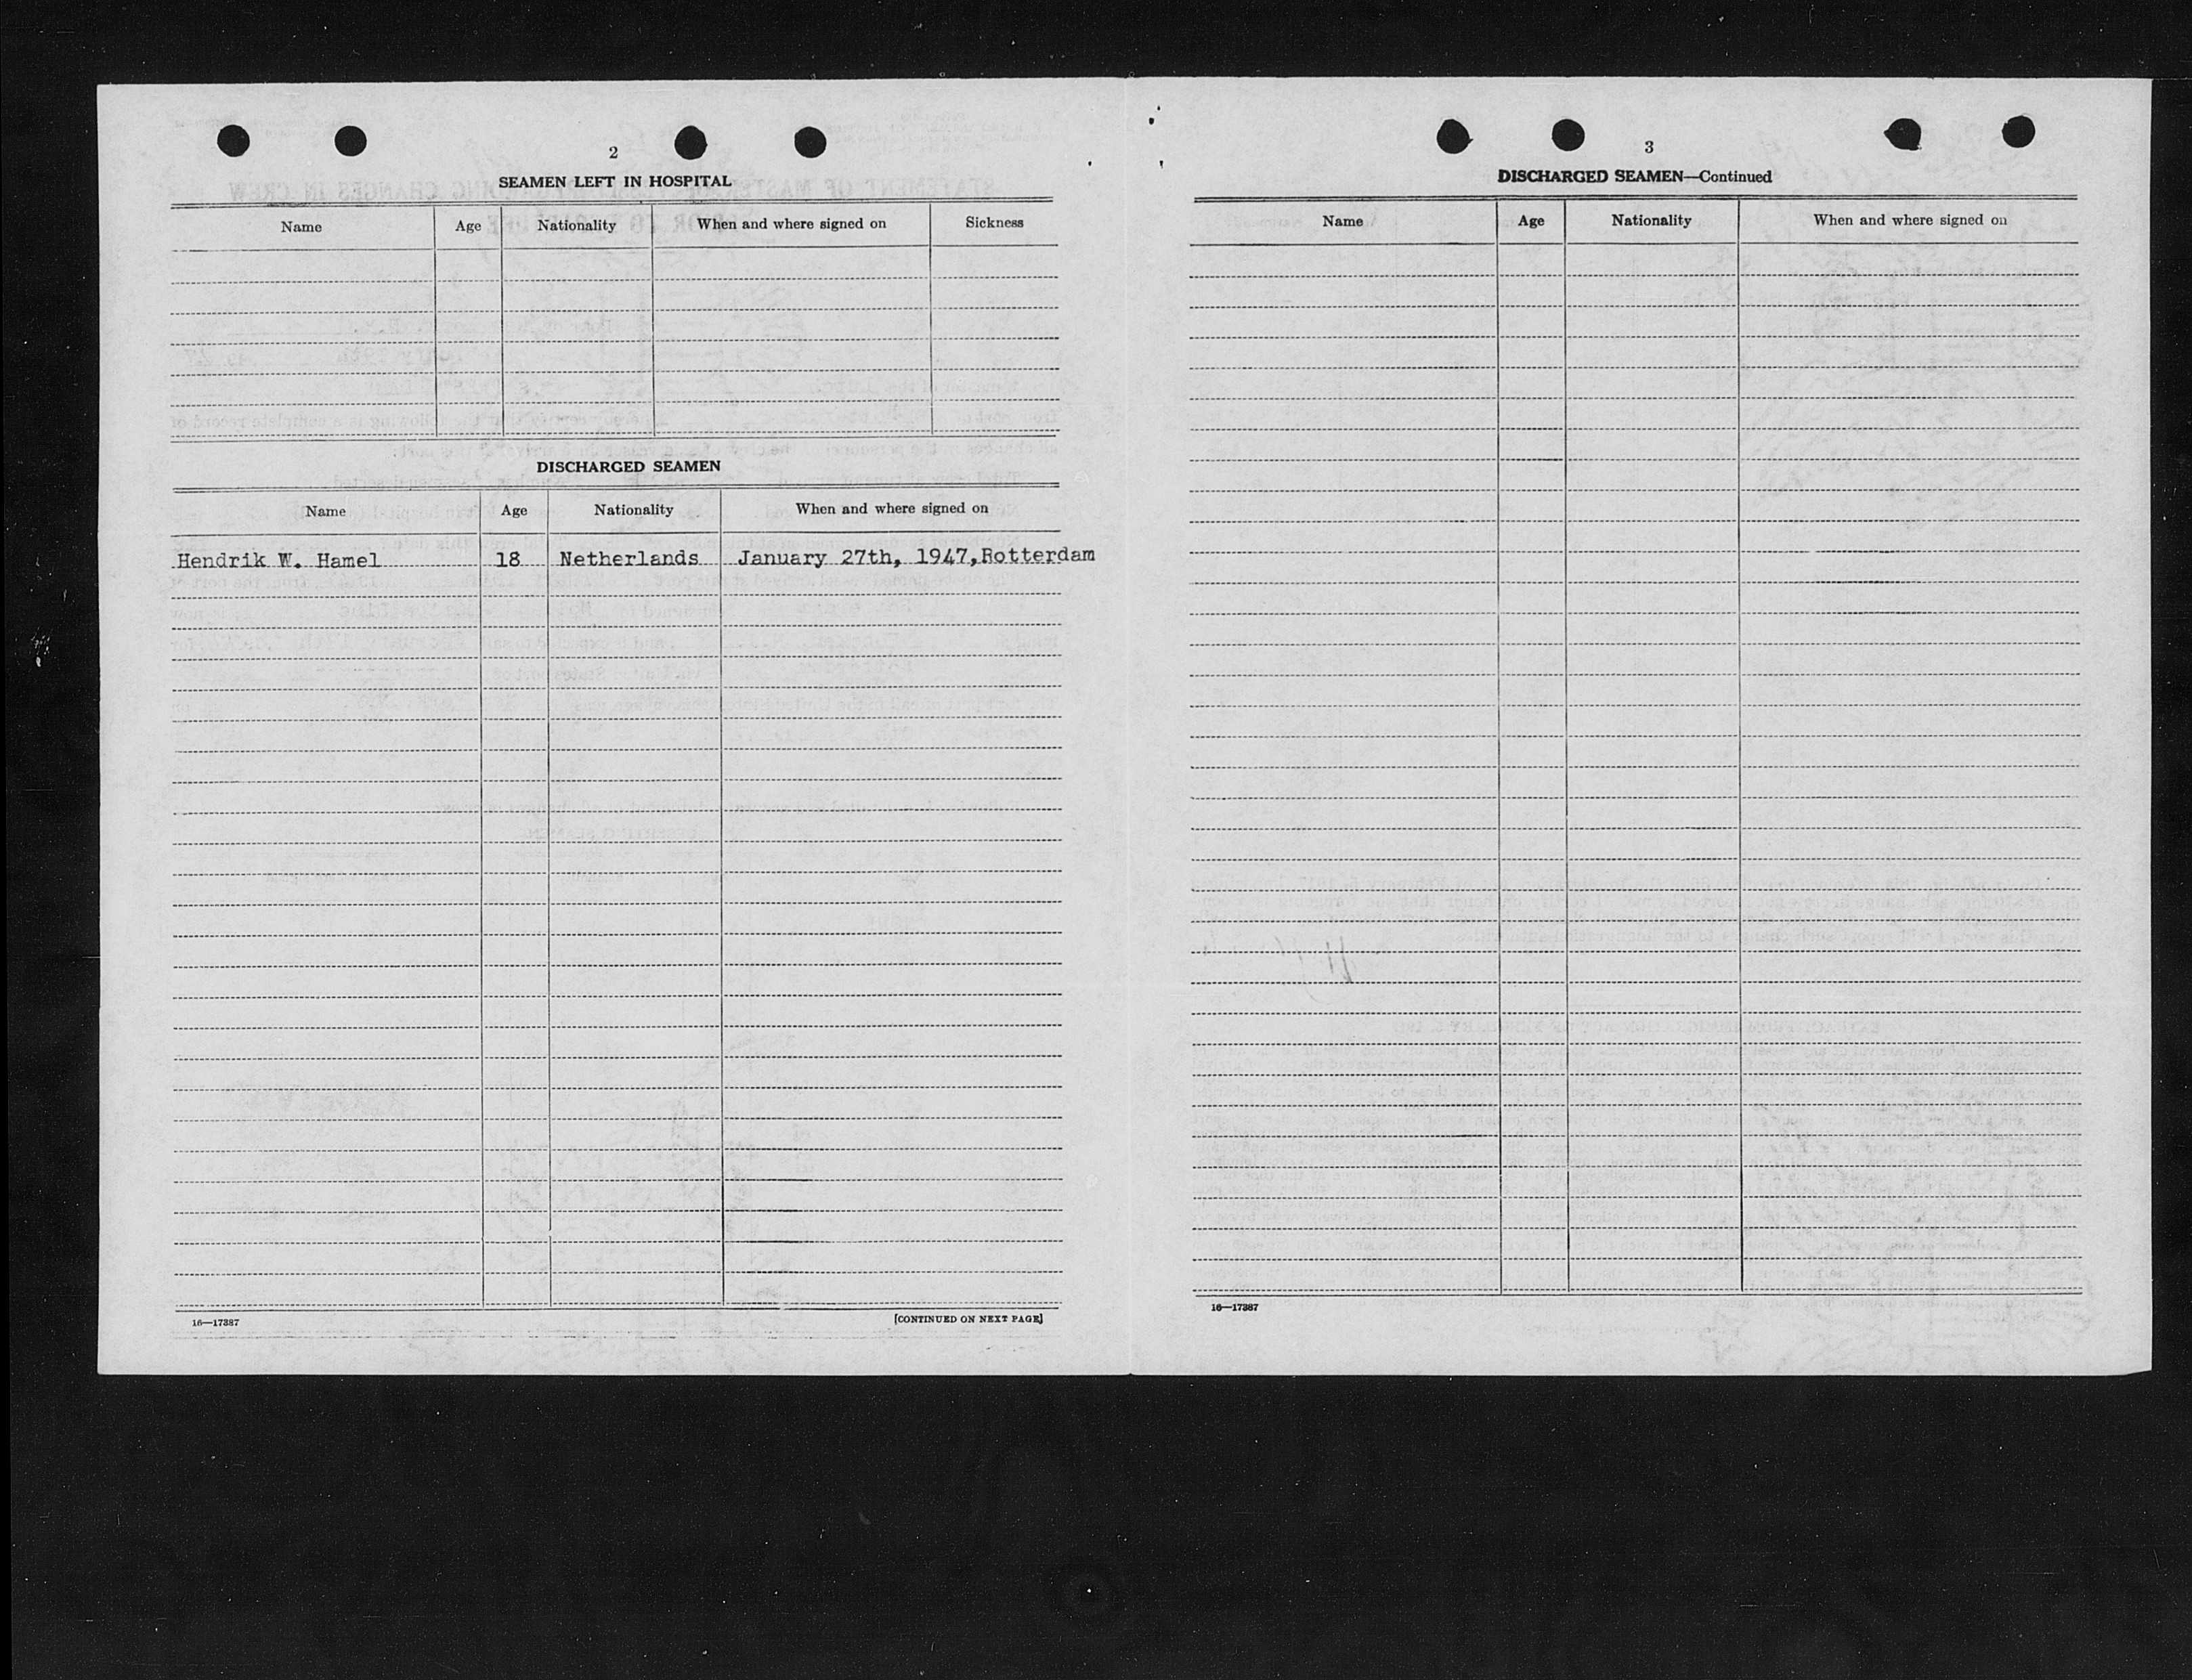 2
SEAMEN LEFT IN HOSPITAL
Name Age Nationality When and where signed on Sickness
DISCHARGED SEAMEN
Name Age Nationality When and where signed on
Hendrik W. Hamel 18 Netherlands January 27th, 1947, Rotterdam
16—17387 [CONTINUED ON NEXT PAGE]
3
DISCHARGED SEAMEN—Continued
Name Age Nationality When and where signed on
16—17387